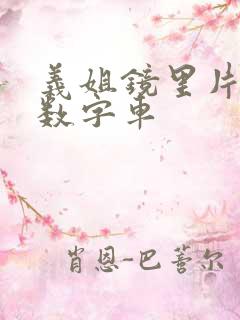 義姐鏡里片
数字車
肖恩-巴薈尔